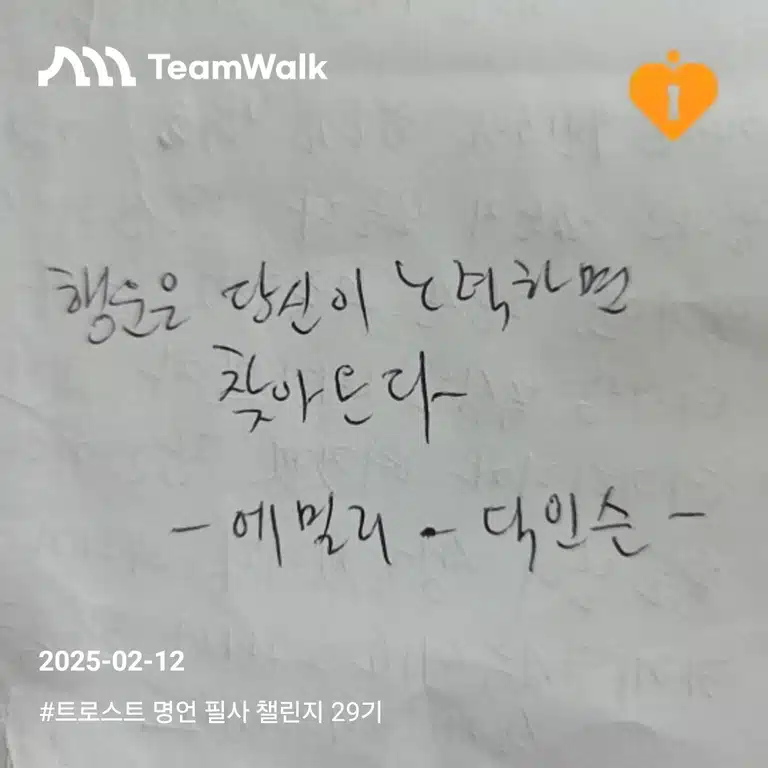 TeamWalk
행운은 당신이 노력하면
찾아온다~
- 에밀리 - 딕인슨 -
2025-02-12
#트로스트 명언 필사 챌린지 29기